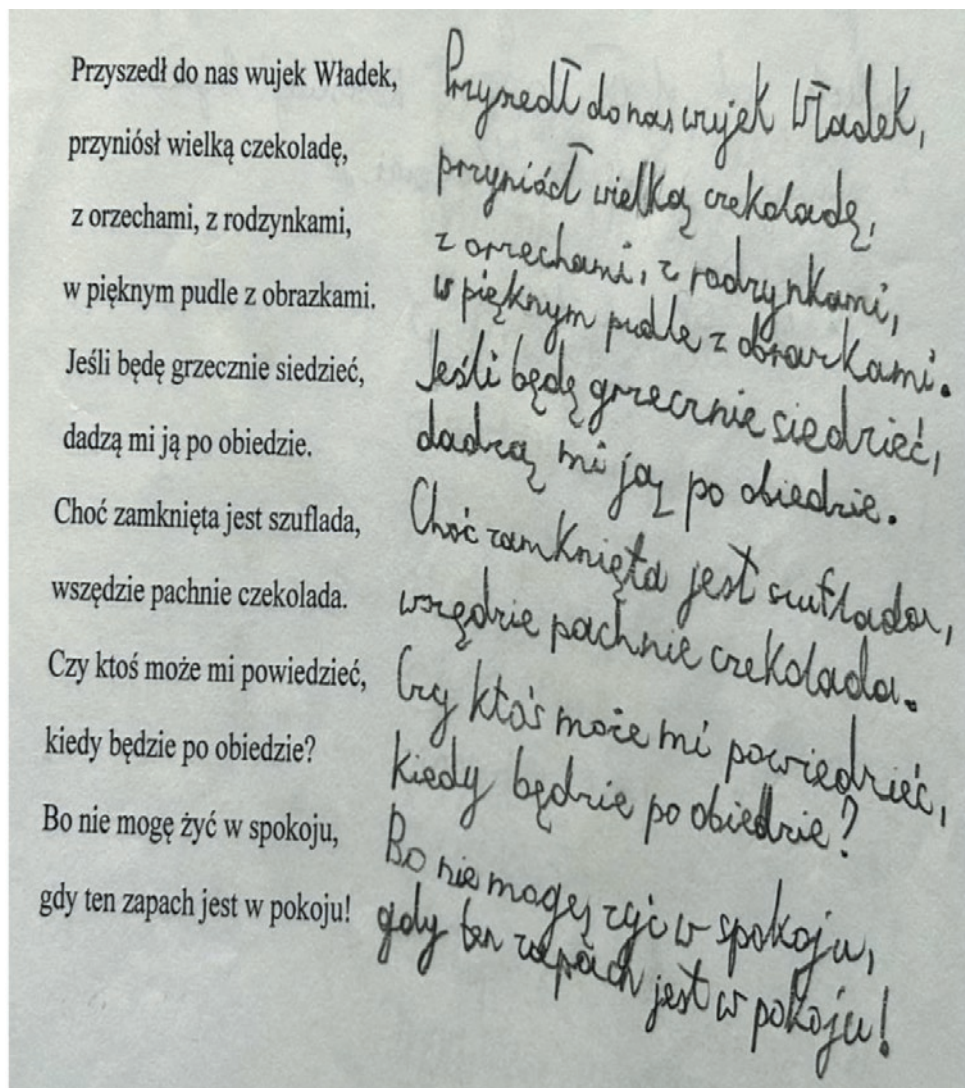 Przyszedł do nas wujek Władek,
przyniósł wielką czekoladę,
z orzechami, z rodzynkami,
w pięknym pudle z obrazkami.
Jeśli będę grzecznie siedzieć,
dadzą mi ją po obiedzie.
Choć zamknięta jest szuflada,
wszędzie pachnie czekolada.
Czy ktoś może mi powiedzieć,
kiedy będzie po obiedzie?
Bo nie mogę żyć w spokoju,
gdy ten zapach jest w pokoju!
Przyszedł do nas wujek Władek,
przyniósł wielką czekoladę,
z orzechami, z rodzynkami,
w pięknym pudle z obrazkami.
Jeśli będę grzecznie siedzieć,
dadzą mi ją po obiedzie.
Choć zamknięta jest szuflada,
wszędzie pachnie czekolada.
Czy ktoś może mi powiedzieć,
kiedy będzie po obiedzie?
Bo nie mogę żyć w spokoju,
gdy ten zapach jest w pokoju!